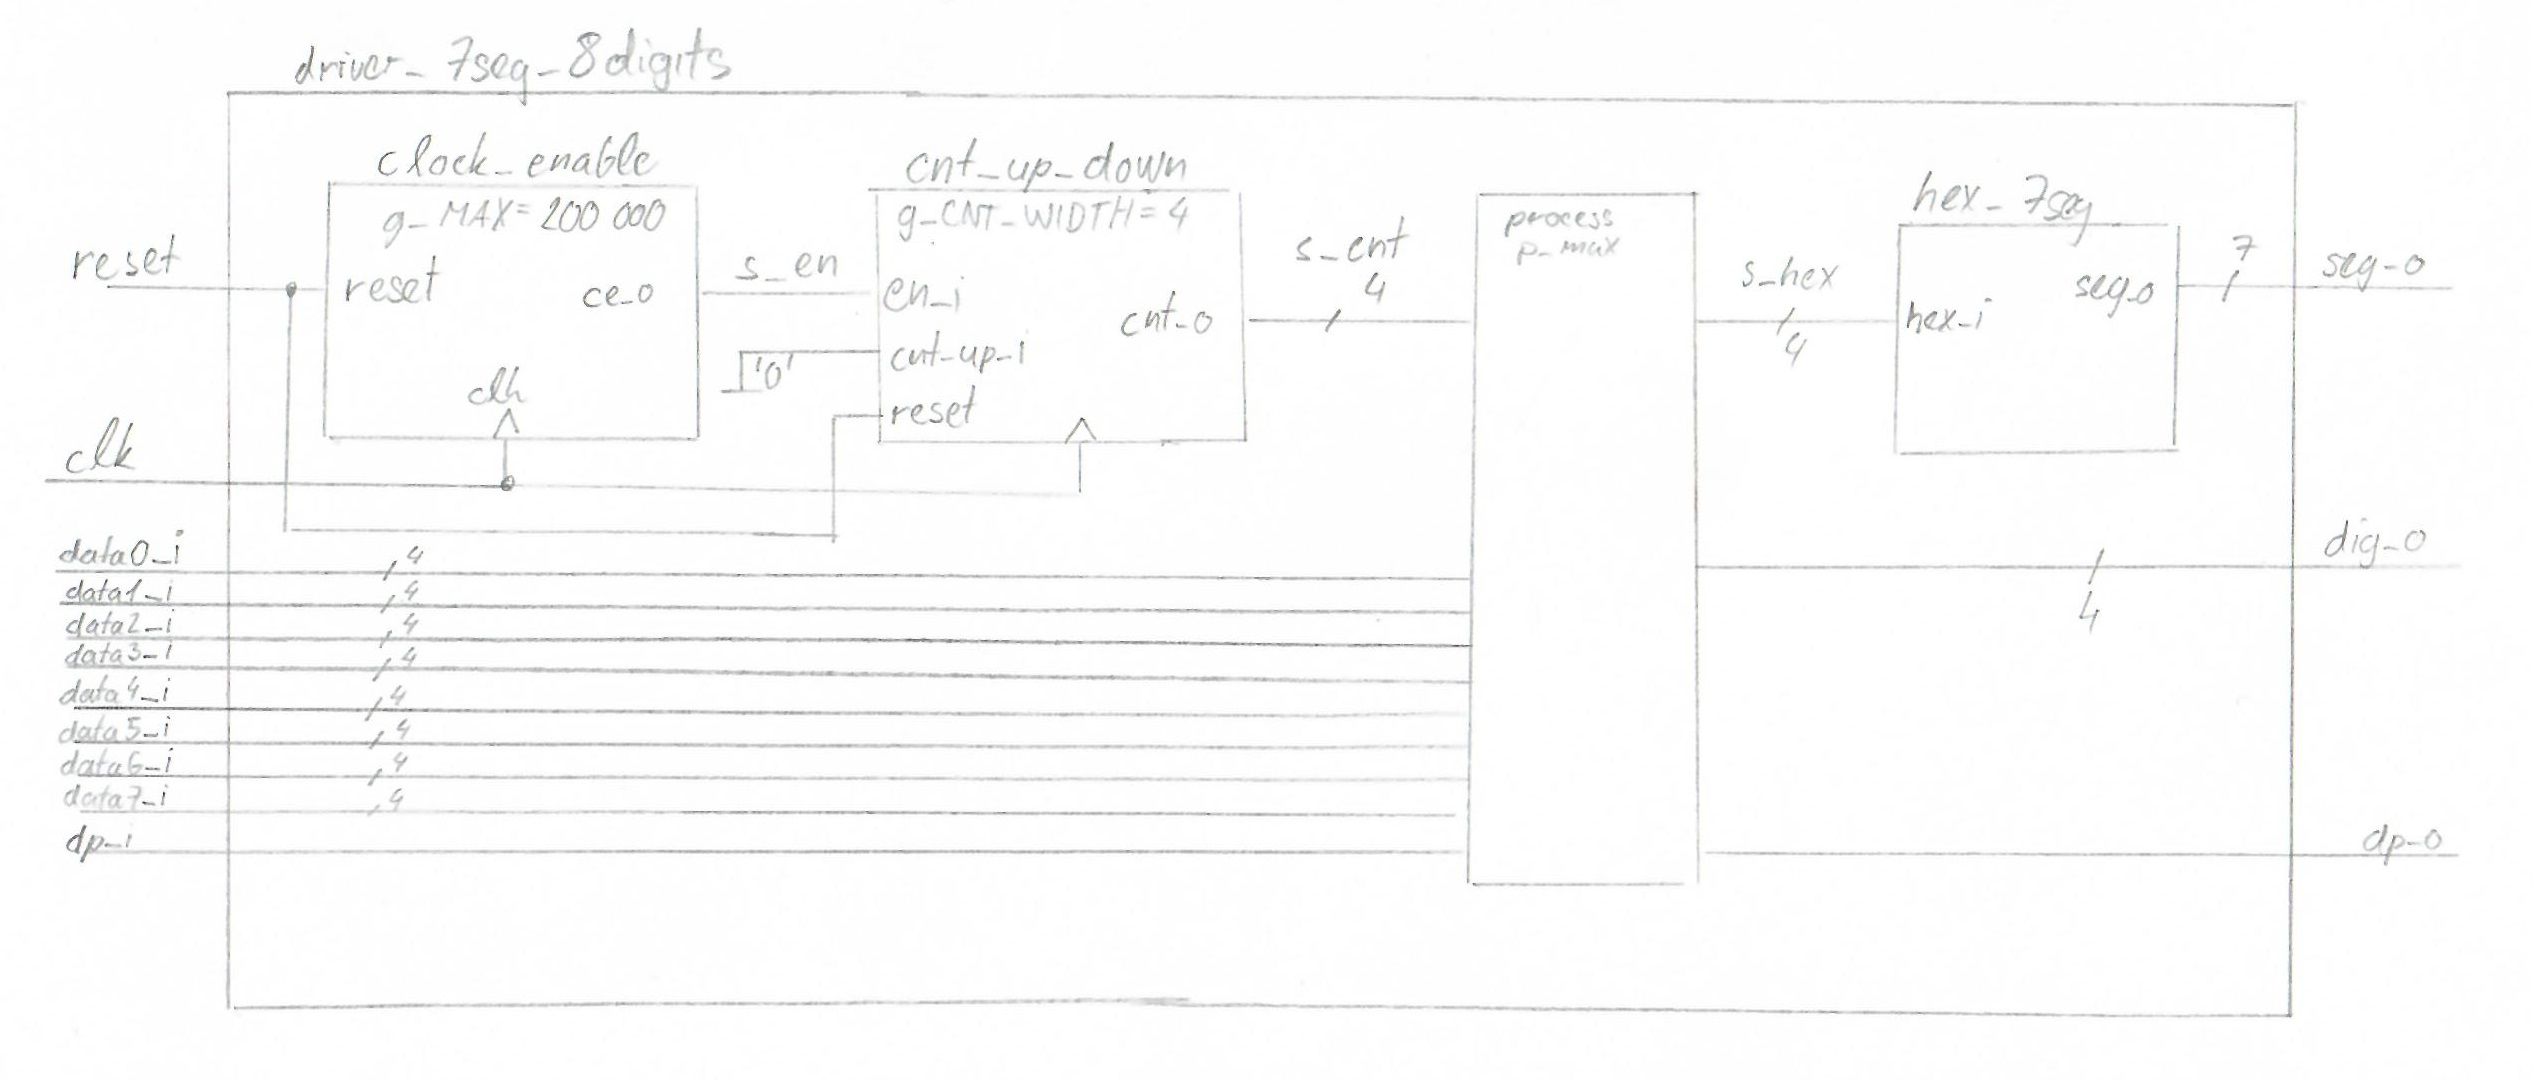 driver_7seg_8digits
clock_enable
g_MAX=200 000
reset
ce_o
clk
cnt_up_down
g_CNT_WIDTH=4
en_i
cnt_up_i
reset
cnt_o
s_en
'0'
s_cnt
4
process
p_mux
s_hex
4
hex_7seg
hex_i
seg_o
7
seg_o
reset
clk
data0_i
4
data1_i
4
data2_i
4
data3_i
4
data4_i
4
data5_i
4
data6_i
4
data7_i
4
dp_i
dig_o
4
dp_o